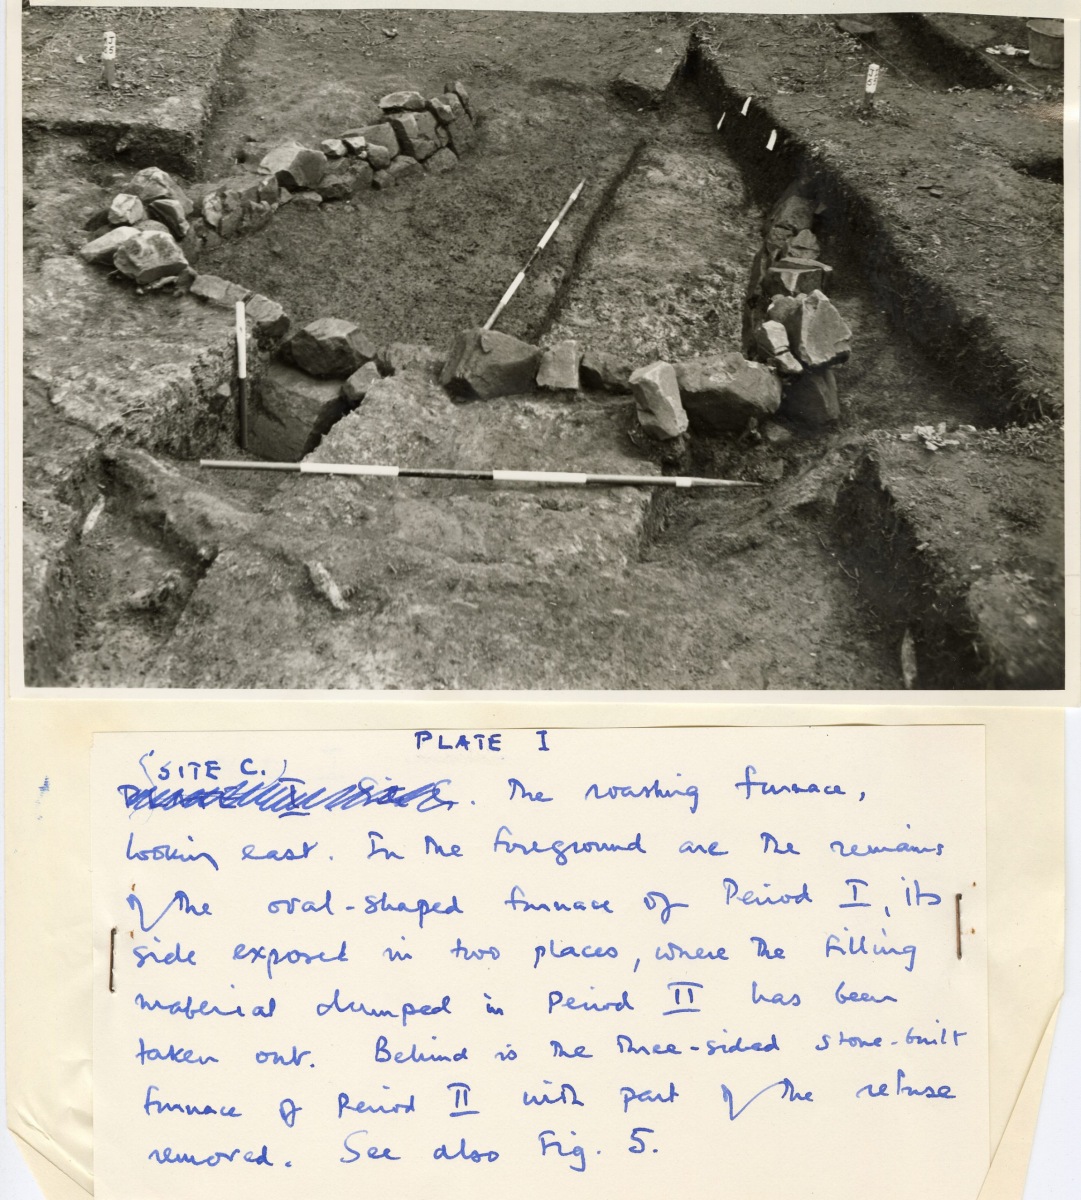 PLATE I
(SITE C.)
The roasting furnace,
looking east. In the foreground are the remains
of the oval-shaped furnace of Period I, its
side exposed in two places, where the filling
material dumped in Period II has been
taken out. Behind is the three-sided stone-built
furnace of Period II with part of the refuse
removed. See also Fig. 5.